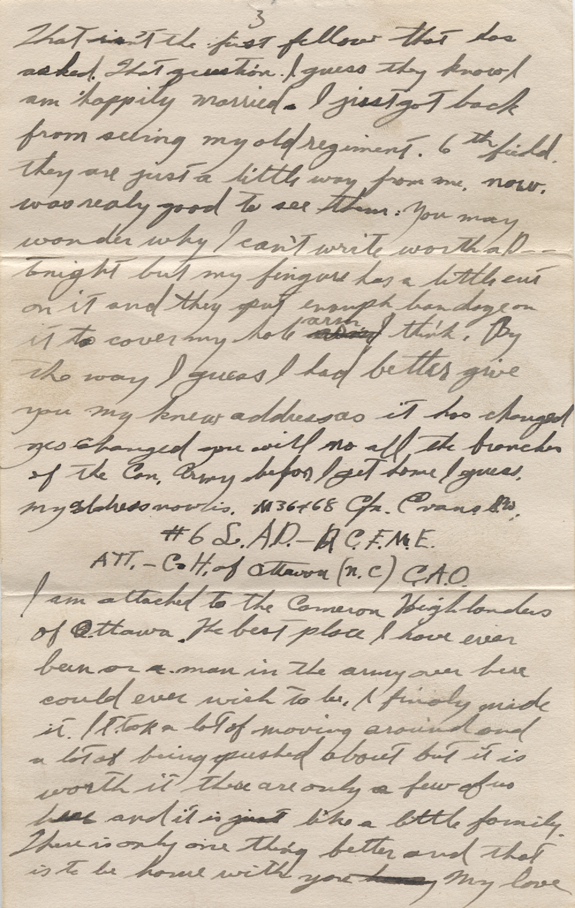 3
That isn't the first fellow that has
asked. That question. I guess they know I
am happily married. I just got back
from seeing my old regiment. 6th field.
they are just a little way from me. now.
was realy good to see them. You may
wonder why I can't write worth a D--
tonight but my fingure has a little cut
on it and they put enough bandage on
it to cover my hole arm I think. By
the way I guess I had better give
you my knew address as it has changed
yes changed you will no all the branches
of the Can. Army befor I get home I guess.
my address now is. Cfn. Evans
#6 L.A.D.-R.C.E.M.E.
ATT.-C.H. of Ottawa (N.C) C.A.O.
I am attached to the Cameron Heighlanders
of Ottawa. The best place I have ever
been or a man in the army over here
could ever wish to be. I finaly made
it. It took a lot of moving around and
a lot of being pushed about but it is
worth it there are only a few of us
here and it is just like a little family.
There is only one thing better and that
is to be home with you My love